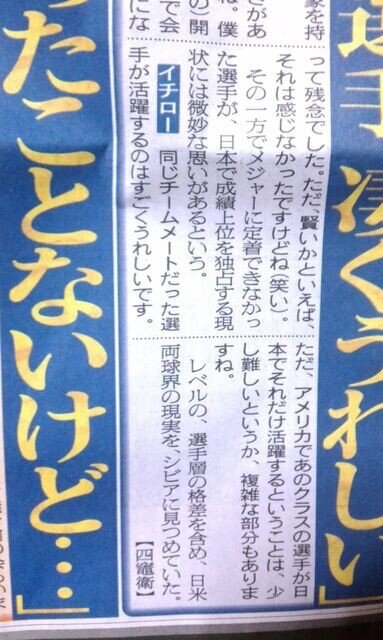 選手 凄くうれしい」
を持
きがあ
ね。僕
の開
で会
にな
って残念でした。ただ、賢いかといえば、
それは感じなかったですけどね（笑い）。
その一方でメジャーに定着できなかっ
た選手が、日本で成績上位を独占する現
状には微妙な思いがあるという。
イチロー　同じチームメートだった選
手が活躍するのはすごくうれしいです。
ただ、アメリカであのクラスの選手が日
本でそれだけ活躍するということは、少
し難しいというか、複雑な部分もありま
すね。
レベルの、選手層の格差を含め、日米
両球界の現実を、シビアに見つめていた。
【四竈衛】
ったことないけど…」